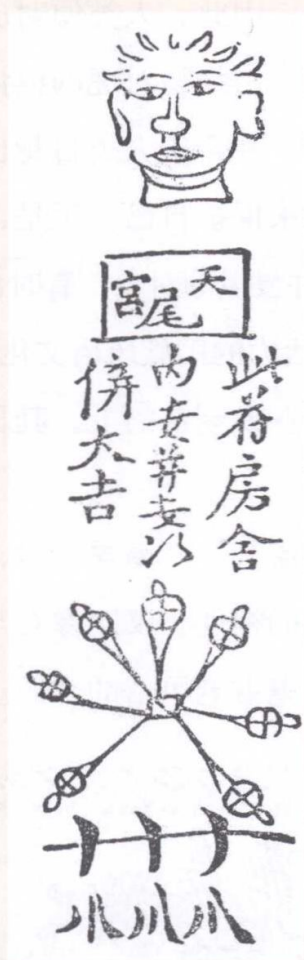 天尾宮
此苻房舍
内安并安
併大吉